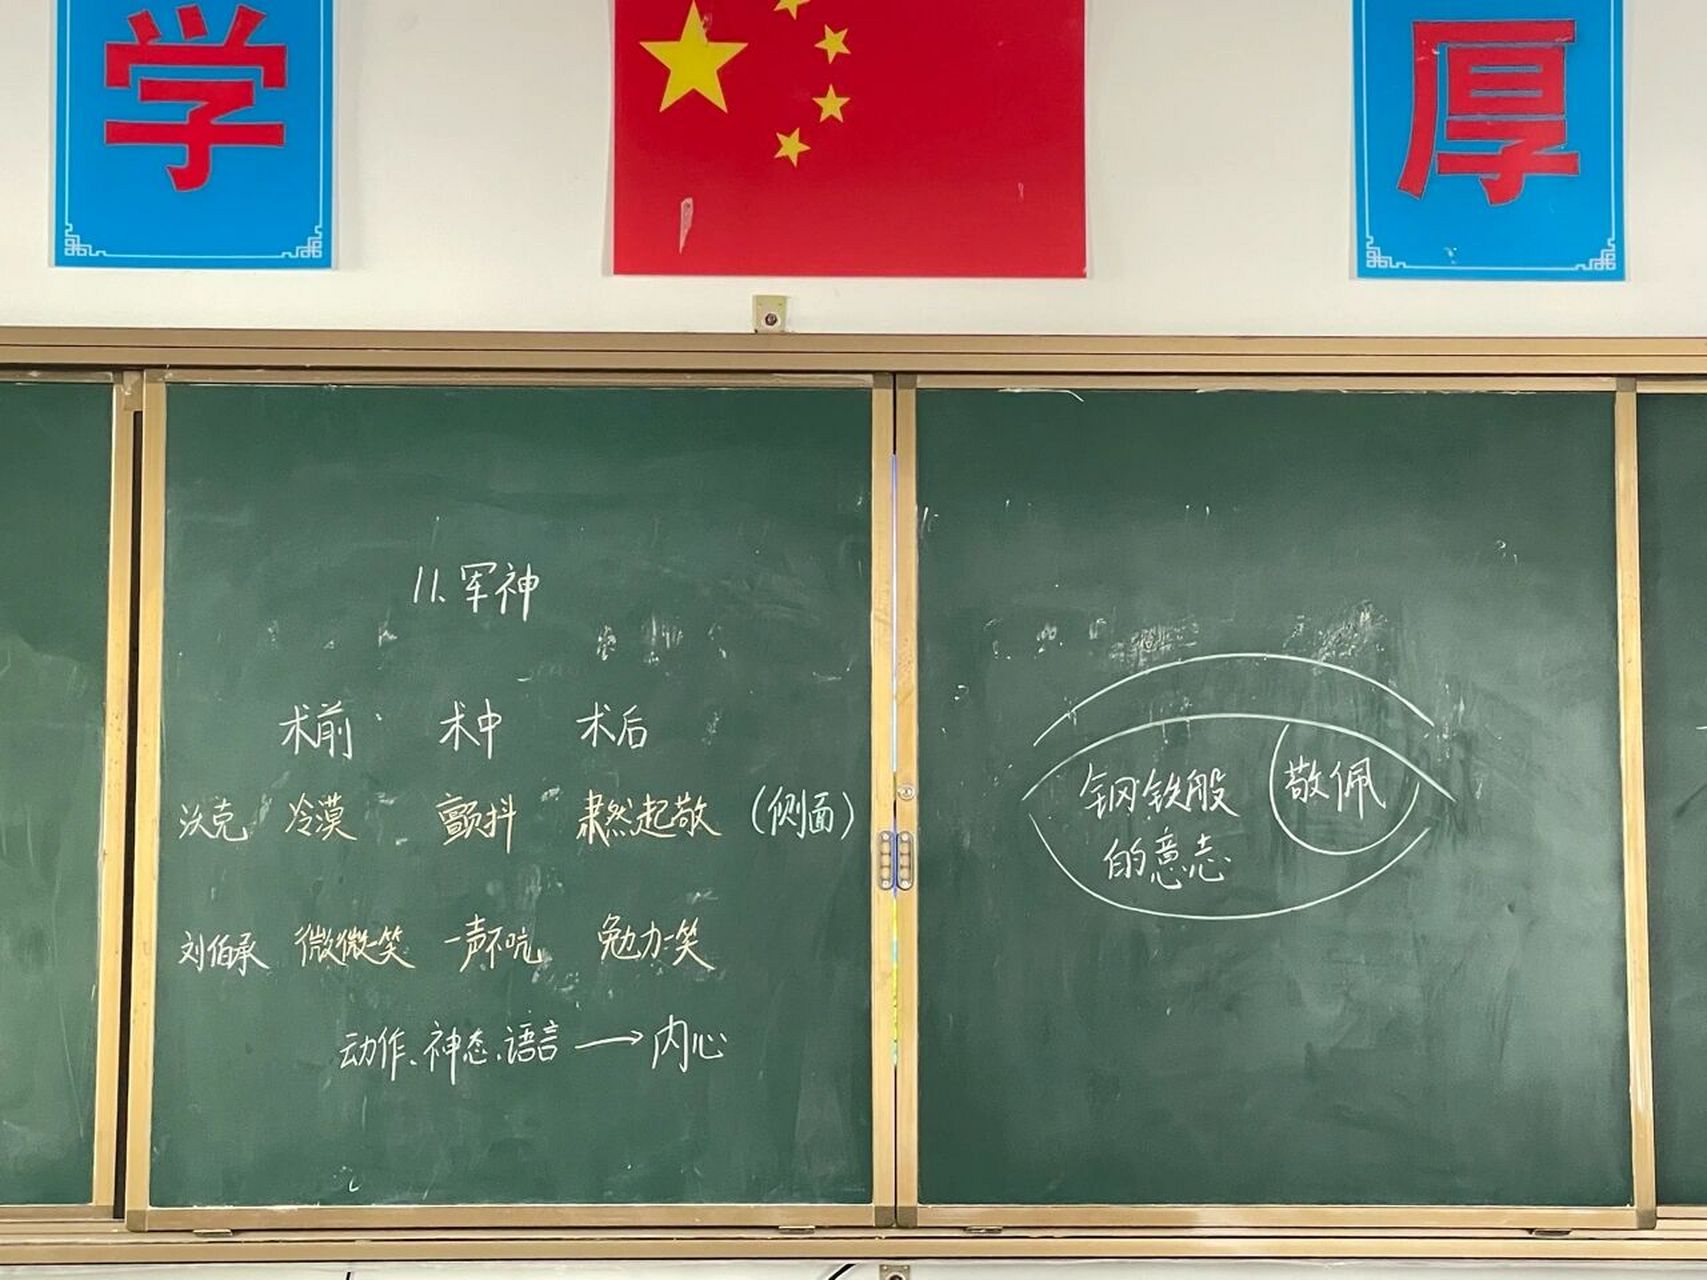 学
厚
11.军神
术前 术中 术后
沃克 冷漠 颤抖 肃然起敬 (侧面)
刘伯承 微微一笑 一声不吭 勉力一笑
动作、神态、语言 → 内心
钢铁般
的意志
敬佩